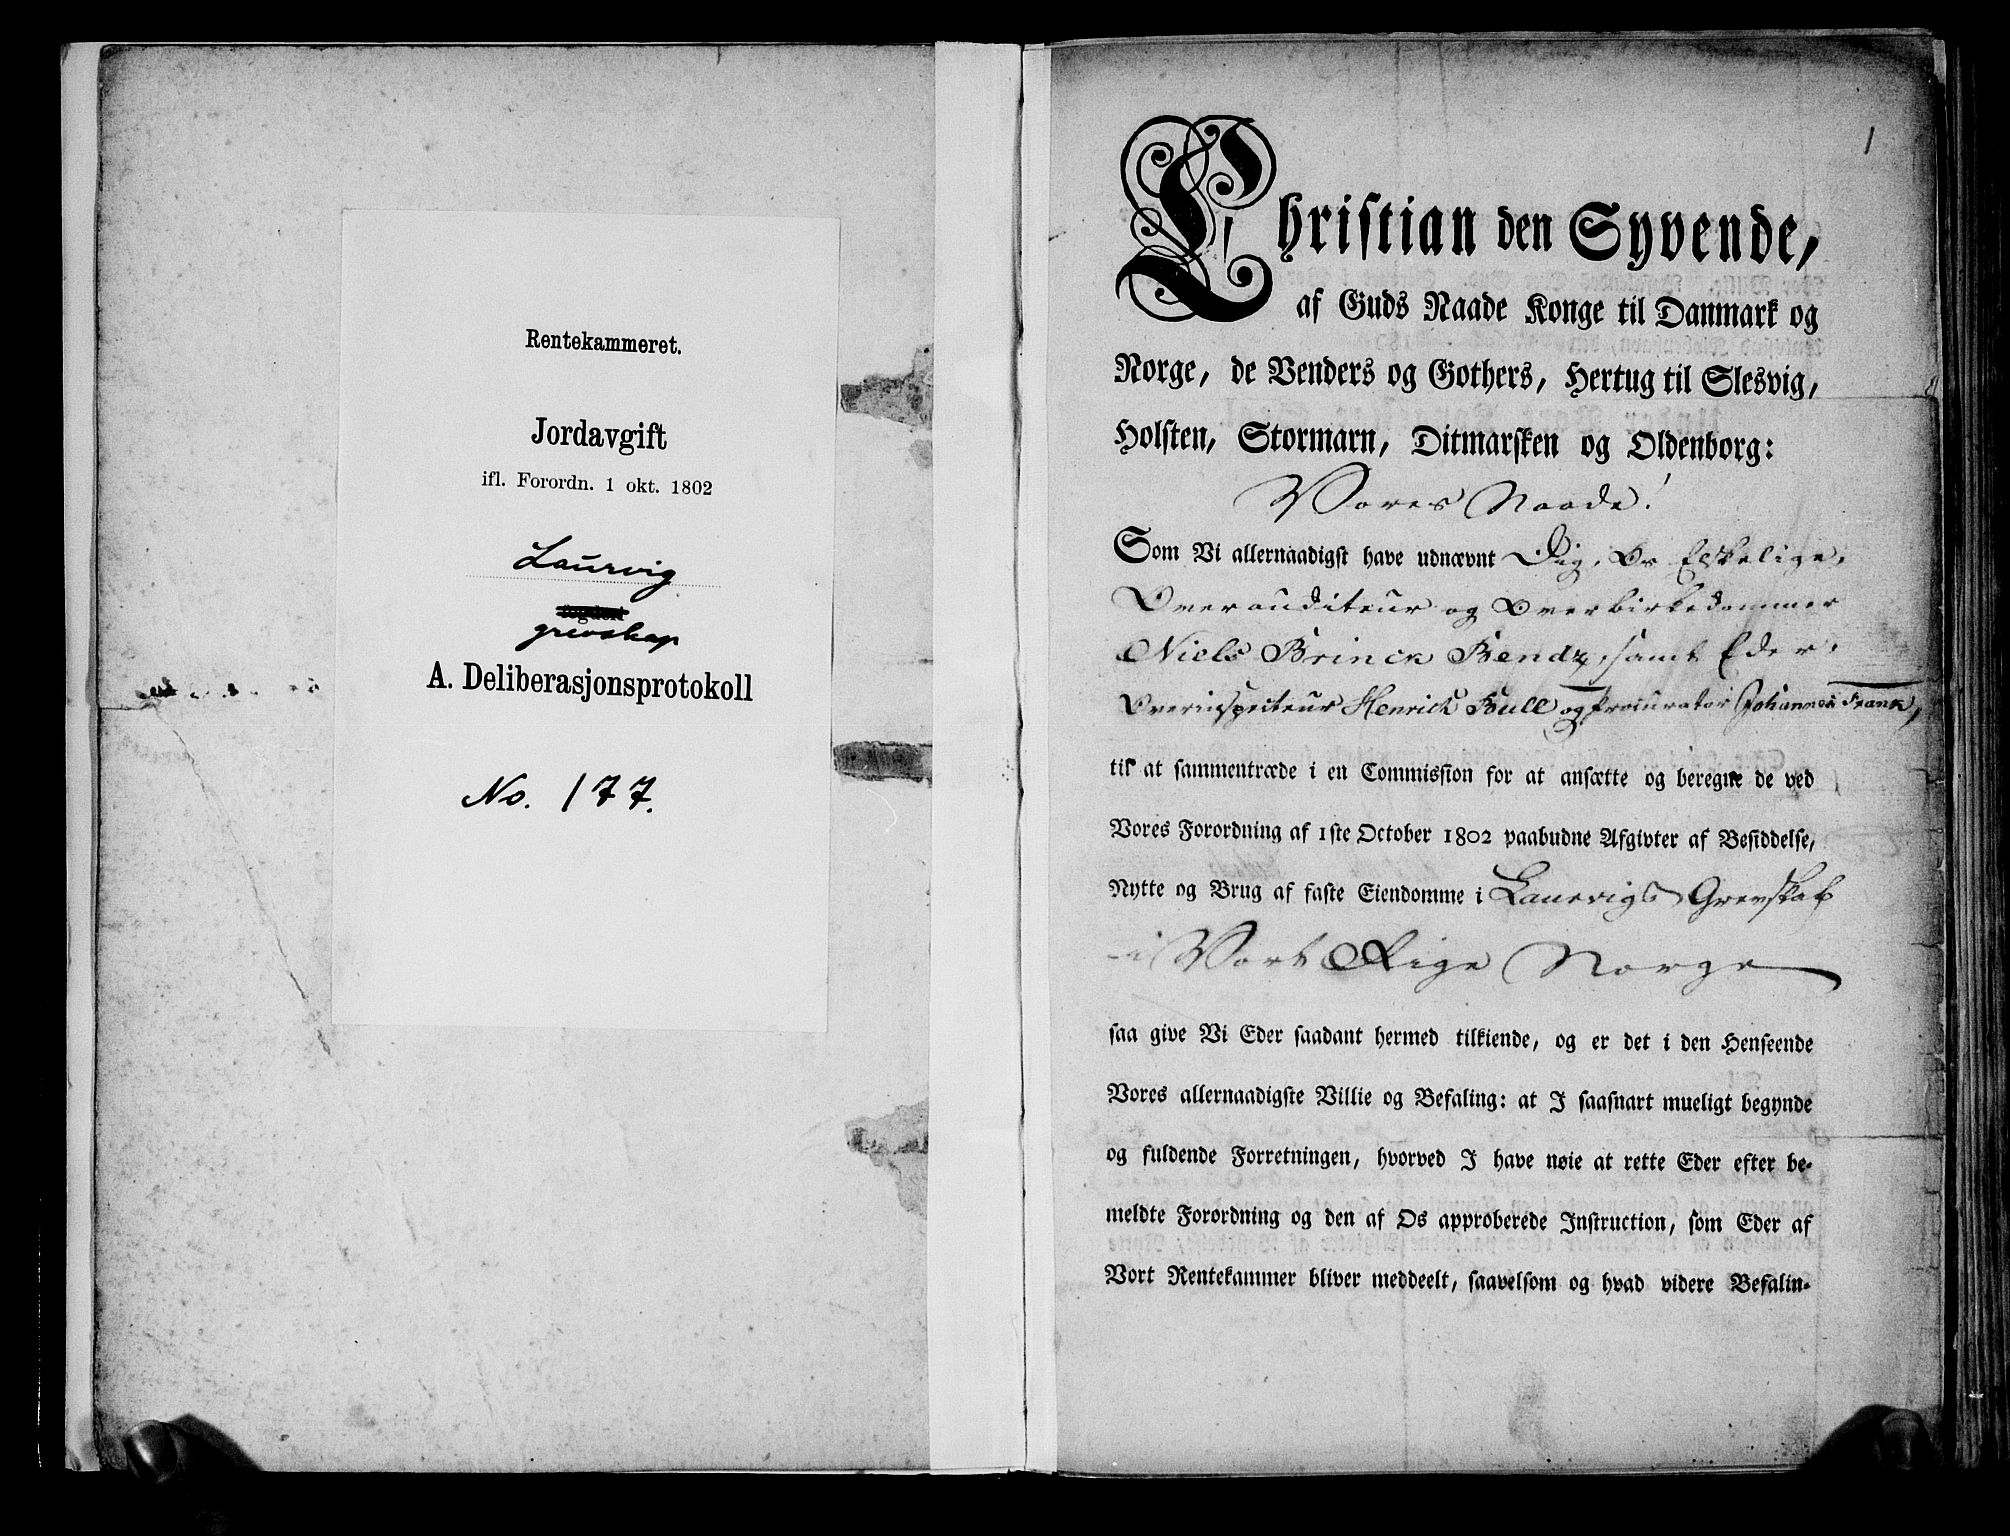 Rentekammeret.
Jordavgift
ifl. Forordn. 1 okt. 1802
Laurvig
grevskap
A. Deliberasjonsprotokoll
No. 177.
1
Christian den Syvende,
af Guds Naade Konge til Danmark og
Norge, de Venders og Gothers, Hertug til Slesvig,
Holsten, Stormarn, Ditmarsken og Oldenborg:
Vores Naade!
Som Vi allernaadigst have udnævnt Dig, Os Elskelige,
Overauditeur og Overbirkedommer
Niels Brinck Bendz, samt Eder,
Overinspecteur Henrich Bull og Procurator Johannes Frank,
til at sammentræde i en Commission for at ansætte og beregne de ved
Vores Forordning af 1ste October 1802 paabudne Afgivter af Besiddelse,
Nytte og Brug af faste Eiendomme i Laurvigs Grevskab
i Vort Rige Norge
saa give Vi Eder saadant hermed tilkiende, og er det i den Henseende
Vores allernaadigste Villie og Befaling: at I saasnart mueligt begynde
og fuldende Forretningen, hvorved I have nøie at rette Eder efter be-
meldte Forordning og den af Os approberede Instruction, som Eder af
Vort Rentekammer bliver meddeelt, saavelsom og hvad videre Befalin-